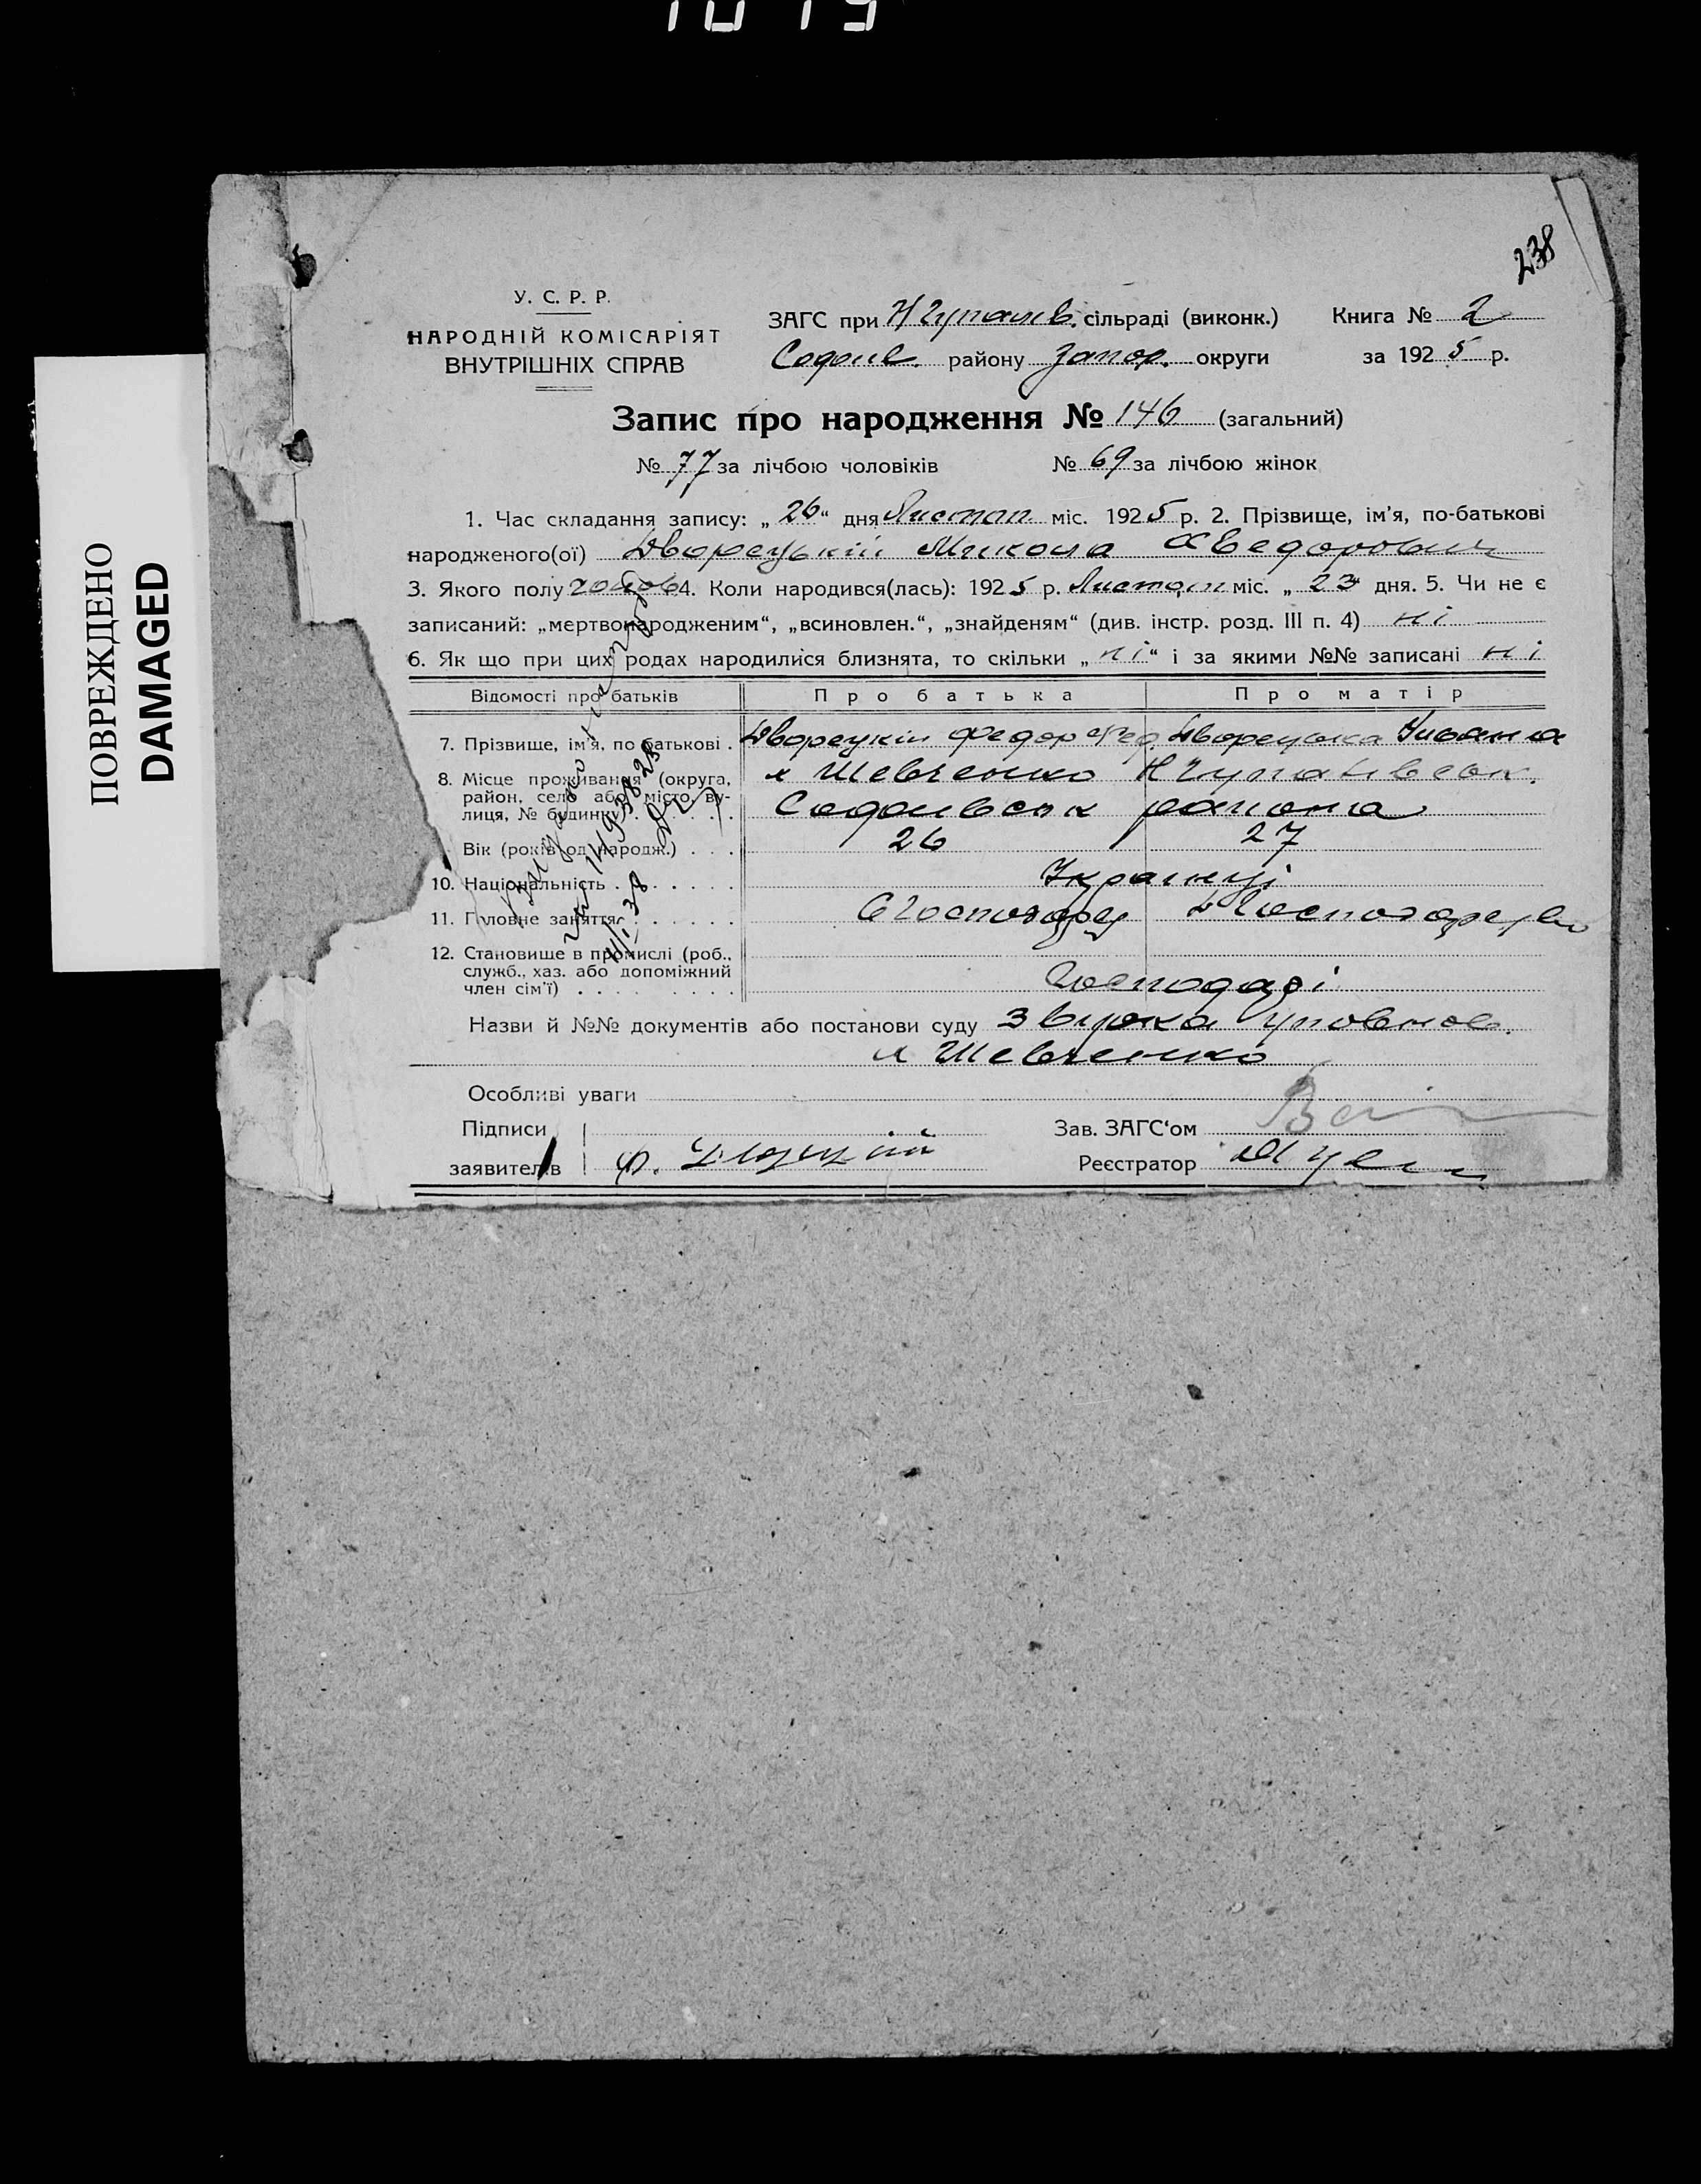 1019
238
ПОВРЕЖДЕНО
DAMAGED
У. С. Р. Р.
НАРОДНІЙ КОМІСАРІЯТ
ВНУТРІШНІХ СПРАВ
ЗАГС при сільраді (виконк.) Книга № 2
району Запор. округи за 1925 р.
Запис про народження № 146 (загальний)
№ 77 за лічбою чоловіків № 69 за лічбою жінок
1. Час складання запису: „26“ дня Листоп. міс. 1925 р. 2. Прізвище, ім’я, по-батькові
народженого(ої) Дворецький Микола Хведорович
3. Якого полу чолов 4. Коли народився(лась): 1925 р. Листоп міс. „23“ дня. 5. Чи не є
записаний: „мертвонародженим“, „всиновлен.“, „знайденям“ (див. інстр. розд. III п. 4) ні
6. Як що при цих родах народилися близнята, то скільки „ні“ і за якими №№ записані ні
Відомості про батьків Про батька Про матір
7. Прізвище, ім’я, по батькові . Дворецкій Федор Фед. Дворецька Уляна
8. Місце проживання (округа, х Шевченко
район, село або місто, ву-
лиця, № будинку) района
Вік (років од народж.) . . . 26 27
10. Національність . . . . . . . Українці
11. Головне заняття . . . . . .
12. Становище в промислі (роб.,
служб., хаз. або допоміжний
член сім’ї) . . . . . . . . . Господарі
Назви й №№ документів або постанови суду уповнов.
х Шевченко
Особливі уваги
Підписи Зав. ЗАГС‘ом
заявителів Ф. Реєстратор